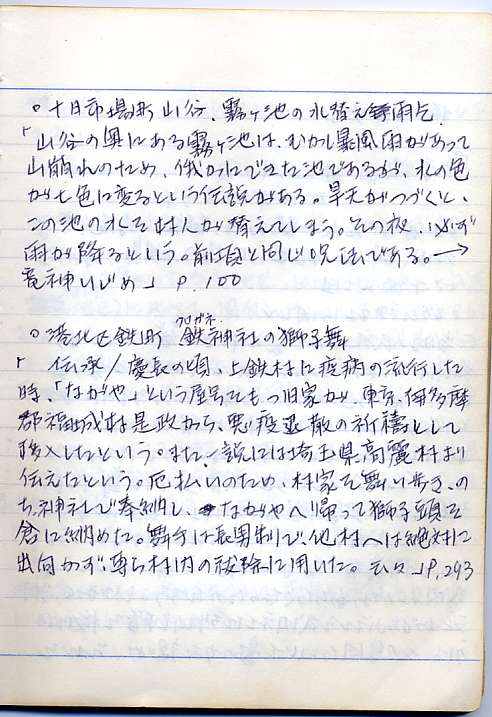 ○十日市場町山谷、霧ヶ池の水替え雨乞
「山谷の奥にある霧ヶ池は、むかし暴風雨があって
山崩れのため、俄かにできた池であるが、水の色
が七色に変るという伝説がある。旱天がつづくと、
この池の水を村人が替えてしまう。その夜、必ず
雨が降るという。前項と同じ呪法である。→
竜神いじめ」 P.100
○港北区鉄町 鉄神社の獅子舞
クロガネ
「伝承/慶長の頃、上鉄村に疫病の流行した
時、「ながや」という屋号をもつ旧家が、東京、伊多摩
郡福城村是政から、悪疫退散の祈禱として
移入したという。また一説には埼玉県高麗村より
伝えたという。厄払いのため、村家を舞い歩き、の
ち神社で奉納し、ながやへ帰って獅子頭を
倉に納めた。舞手は長男制で、他村へは絶対に
出向かず専ら村内の祓除に用いた。云々」P.293